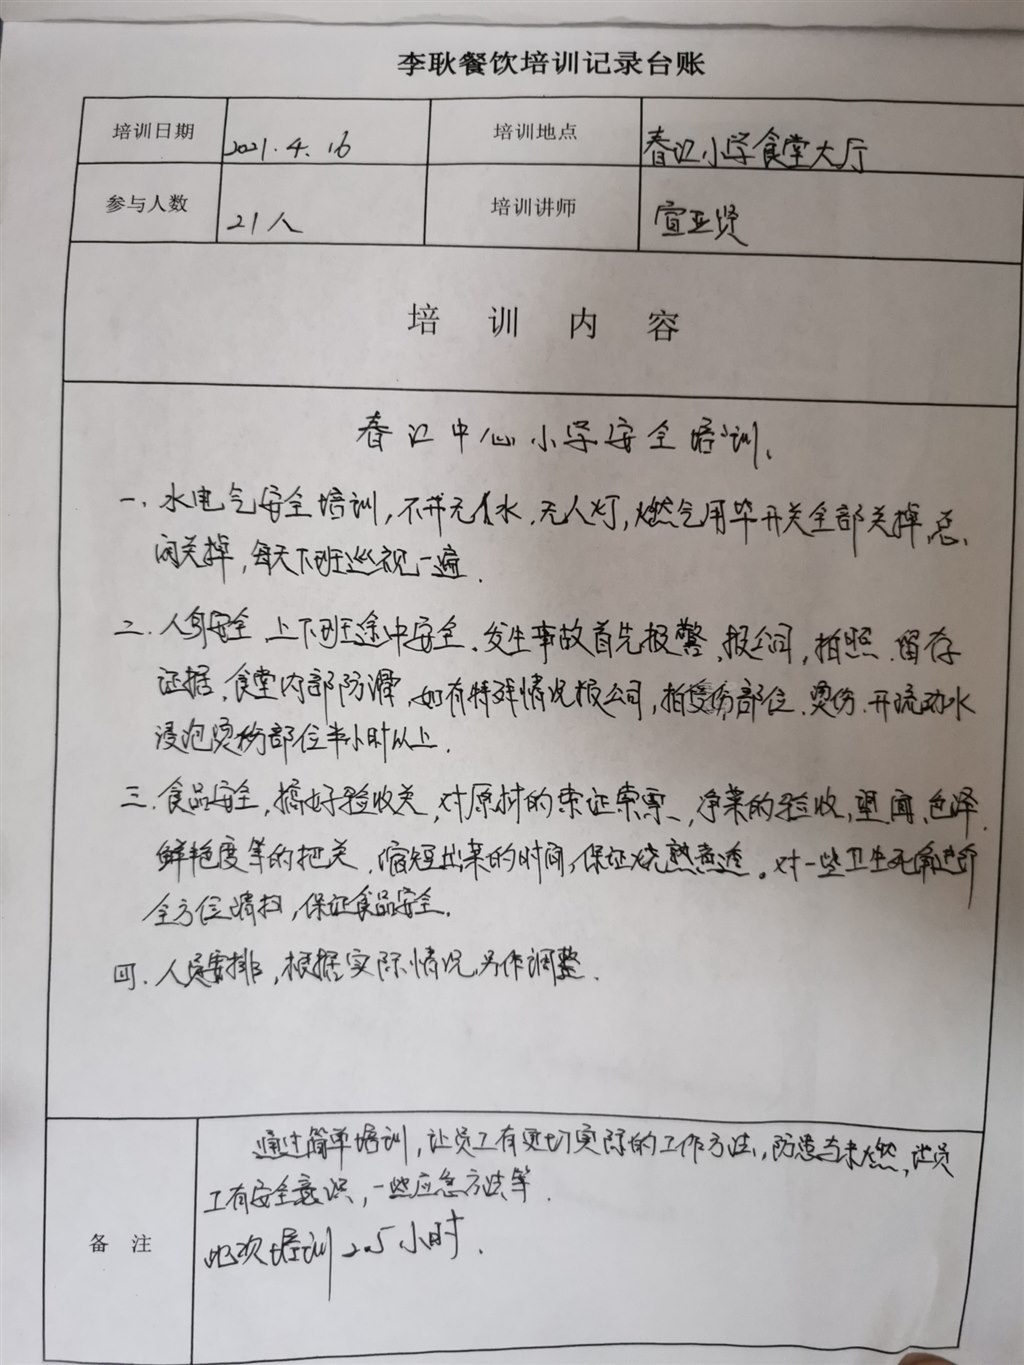 李耿餐饮培训记录台账
培训日期 2021.4.16 培训地点 春江小学食堂大厅
参与人数 21人 培训讲师 宣亚贤
培训内容
春江中心小学安全培训、
一、水电气安全培训,不开无人水、无人灯,燃气用毕开关全部关掉,总
阀关掉,每天下班巡视一遍.
二、人身安全、上下班途中安全、发生事故首先报警、报公司,拍照、留存
证据、食堂内部防滑,如有特殊情况报公司,拍受伤部位、烫伤、开流动水
浸泡烫伤部位半小时以上.
三、食品安全,搞好验收关,对原材的索证索票、净菜的验收,望、闻、色泽、
鲜艳度等的把关、缩短出菜的时间,保证烧熟煮透。对一些卫生死角进行
全方位清扫,保证食品安全.
四、人员安排,根据实际情况另作调整.
备注
通过简单培训,让员工有更切实际的工作方法,防患与未燃,让员
工有安全意识,一些应急方法等.
此次培训2.5小时.